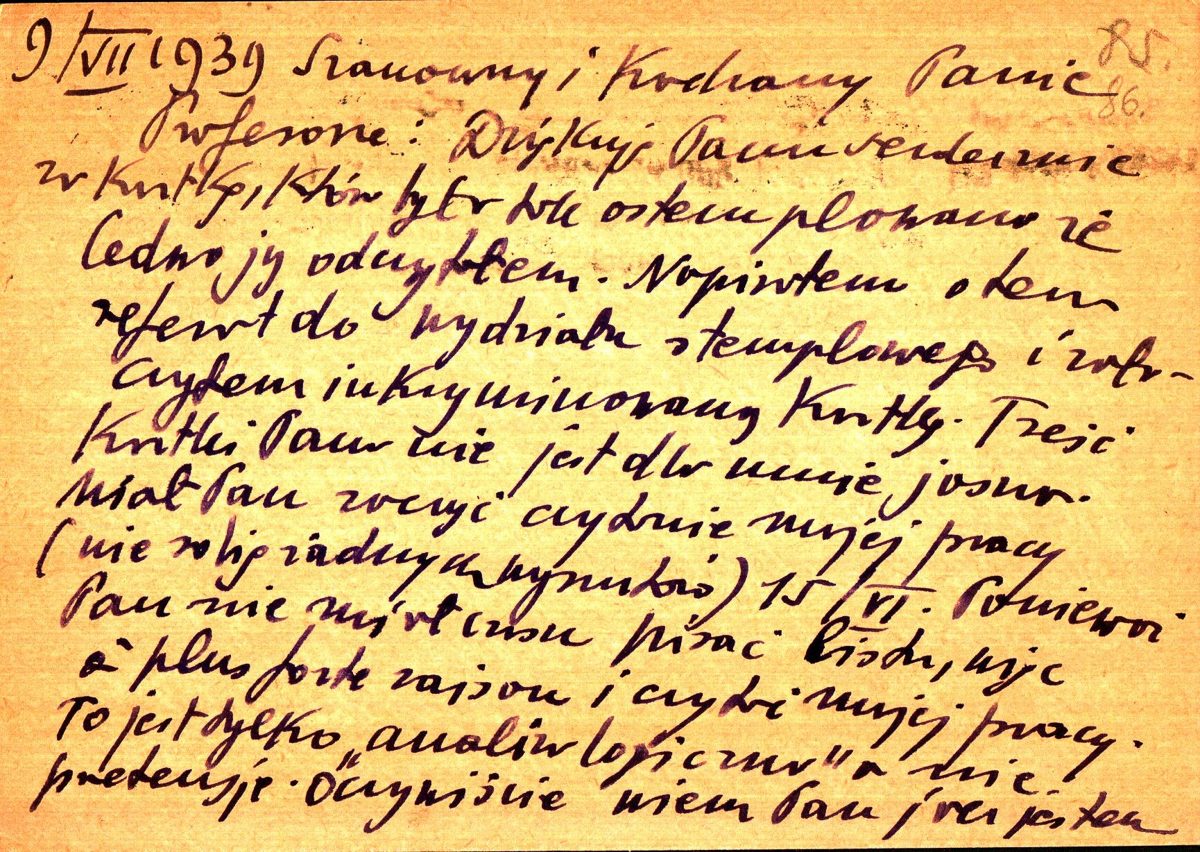 9/VII 1939 Szanowny i Kochany Panie
85.
86.
Profesorze: Dziękuję Panu serdecznie
za kartkę, która była tak ostemplowana że
ledwo ją odczytałem. Napisałem o tem
referat do wydziału stemplowego i załą-
czyłem inkryminowaną kartkę. Treść
kartki Pana nie jest dla mnie jasna.
Miał Pan zacząć czytanie mojej pracy
(nie robię żadnych wyrzutów) 15/VI. Ponieważ
Pan nie miał czasu pisać listu, więc
à plus forte raison i czytać mojej pracy.
To jest tylko „analiza logiczna" a nie
pretensje. Oczywiście wiem Pan jest